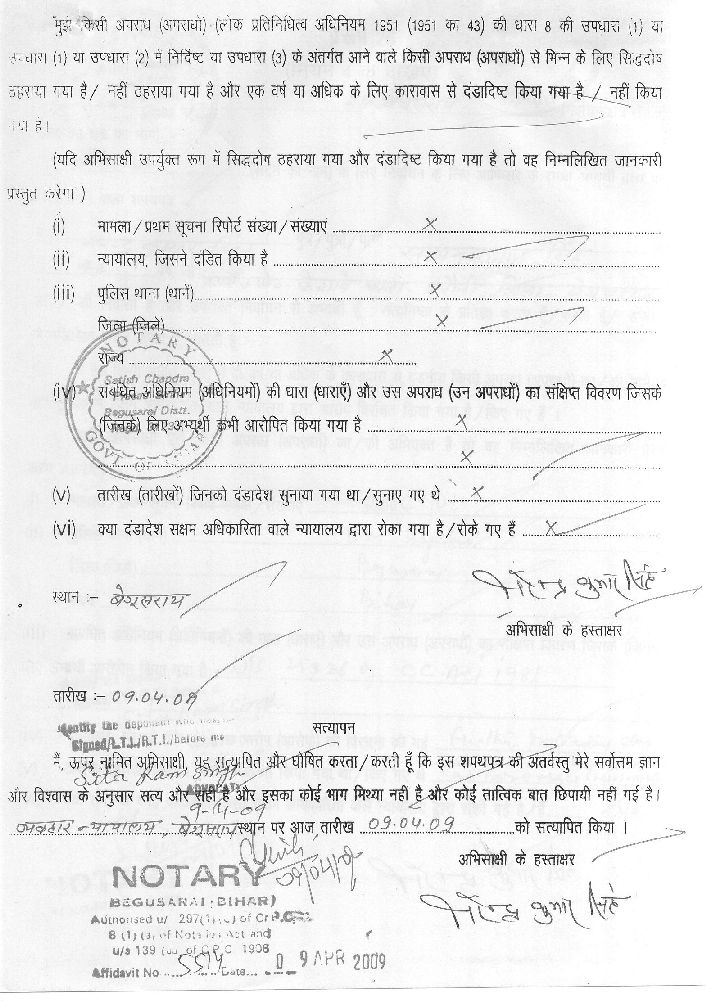 मुझे किसी अपराध (अपराधों) (लोक प्रतिनिधित्व अधिनियम 1951 (1951 का 43) की धारा 8 की उपधारा (1) या
उपधारा (1) या उपधारा (2) में निर्दिष्ट या उपधारा (3) के अंतर्गत आने वाले किसी अपराध (अपराधों) से भिन्न के लिए सिद्धदोष
ठहराया गया है / नहीं ठहराया गया है और एक वर्ष या अधिक के लिए कारावास से दंडादिष्ट किया गया है / नहीं किया
गया है।
(यदि अभिसाक्षी उपर्युक्त रूप में सिद्धदोष ठहराया गया और दंडादिष्ट किया गया है तो वह निम्नलिखित जानकारी
प्रस्तुत करेगा।)
(i) मामला / प्रथम सूचना रिपोर्ट संख्या / संख्याएं x
(ii) न्यायालय, जिसने दंडित किया है x
(iii) पुलिस थाना (थानें) x
जिला (जिले) x
राज्य x
NOTARY
Satish Chandra
Begusarai Distt.
GOVT OF
(iv) संबंधित अधिनियम (अधिनियमों) की धारा (धाराएँ) और उस अपराध (उन अपराधों) का संक्षिप्त विवरण जिसके
(जिनके) लिए अभ्यर्थी कभी आरोपित किया गया है x
x
(v) तारीख (तारीखों) जिनको दंडादेश सुनाया गया था / सुनाए गए थे x
(vi) क्या दंडादेश सक्षम अधिकारिता वाले न्यायालय द्वारा रोका गया है / रोके गए हैं x
स्थान :- बेगुसराय
कुमार सिंह
अभिसाक्षी के हस्ताक्षर
तारीख :- 09.04.09
identify the deponent who
Signed/L.T.I./R.T.I./before me
सत्यापन
मैं, ऊपर नामित अभिसाक्षी, यह सत्यापित और घोषित करता / करती हूँ कि इस शपथपत्र की अंतर्वस्तु मेरे सर्वोत्तम ज्ञान
Sita Ram Singh
ADVOCATE
और विश्वास के अनुसार सत्य और सही है और इसका कोई भाग मिथ्या नहीं है और कोई तात्विक बात छिपायी नहीं गई है।
9-4-09
व्यवहार न्यायालय, बेगुसराय स्थान पर आज, तारीख 09.04.09 को सत्यापित किया।
09/04/09
अभिसाक्षी के हस्ताक्षर
NOTARY
BEGUSARAI (BIHAR)
Authorised u/ 297(1)(c) of Cr P.C.
8 (1) (a) of Notaries Act and
u/s 139 of C.P.C 1908
Affidavit No 5514 Date 09 APR 2009
कुमार सिंह